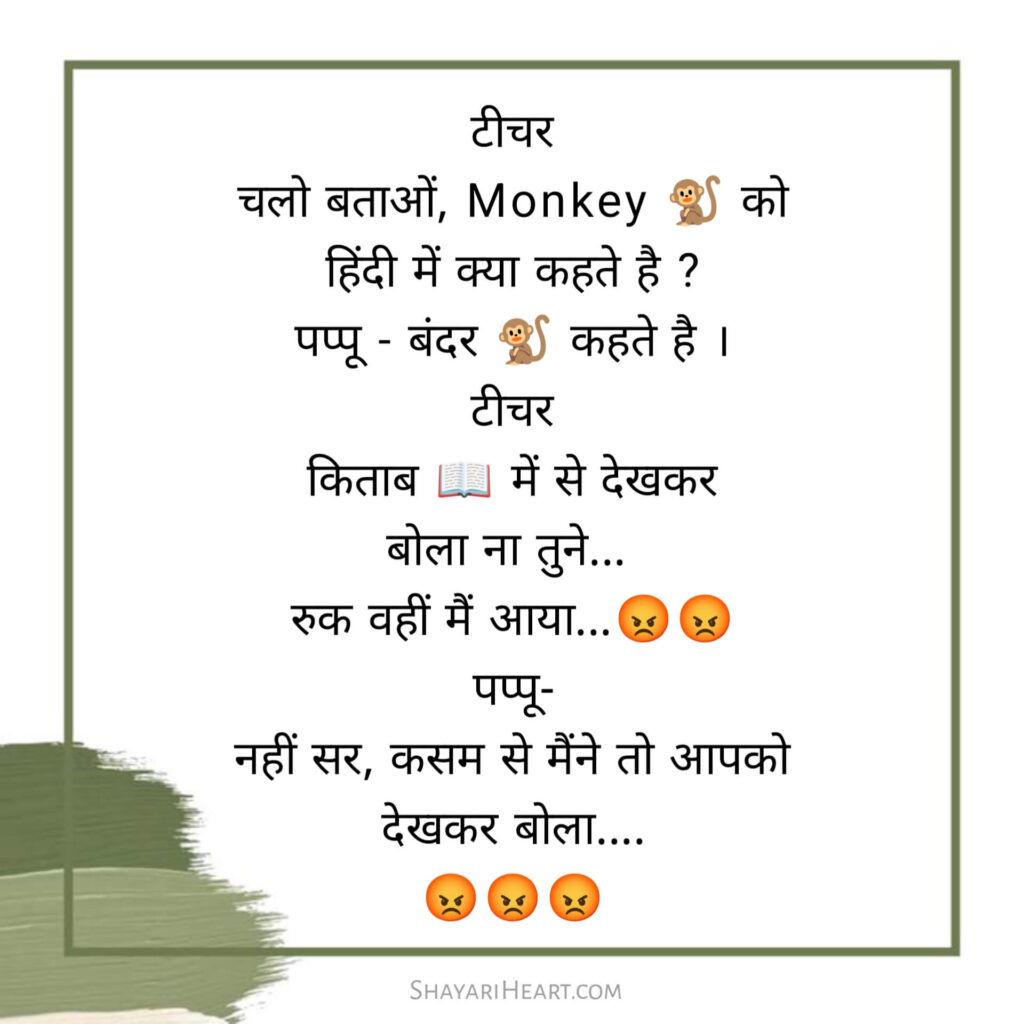 टीचर
चलो बताओं, Monkey 🐒 को
हिंदी में क्या कहते है ?
पप्पू - बंदर 🐒 कहते है ।
टीचर
किताब 📖 में से देखकर
बोला ना तुने...
रुक वहीं मैं आया...😡😡
पप्पू-
नहीं सर, कसम से मैंने तो आपको
देखकर बोला....
😡😡😡
ShayariHeart.com